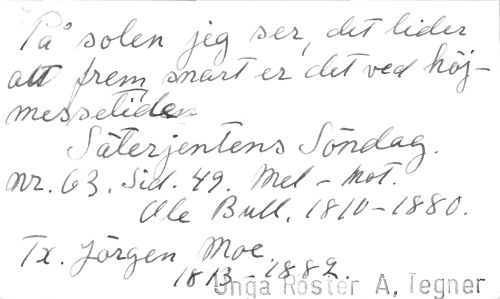 På solen jeg ser, det lider
att frem, snart er det ved höj-
messetiden
Säterjentens Söndag.
Nr. 63. Sid. 49. Mel - Mot.
Ole Bull, 1810-1880.
Tx. Jörgen Moe.
1813-1882.
Unga Röster A, Tegner